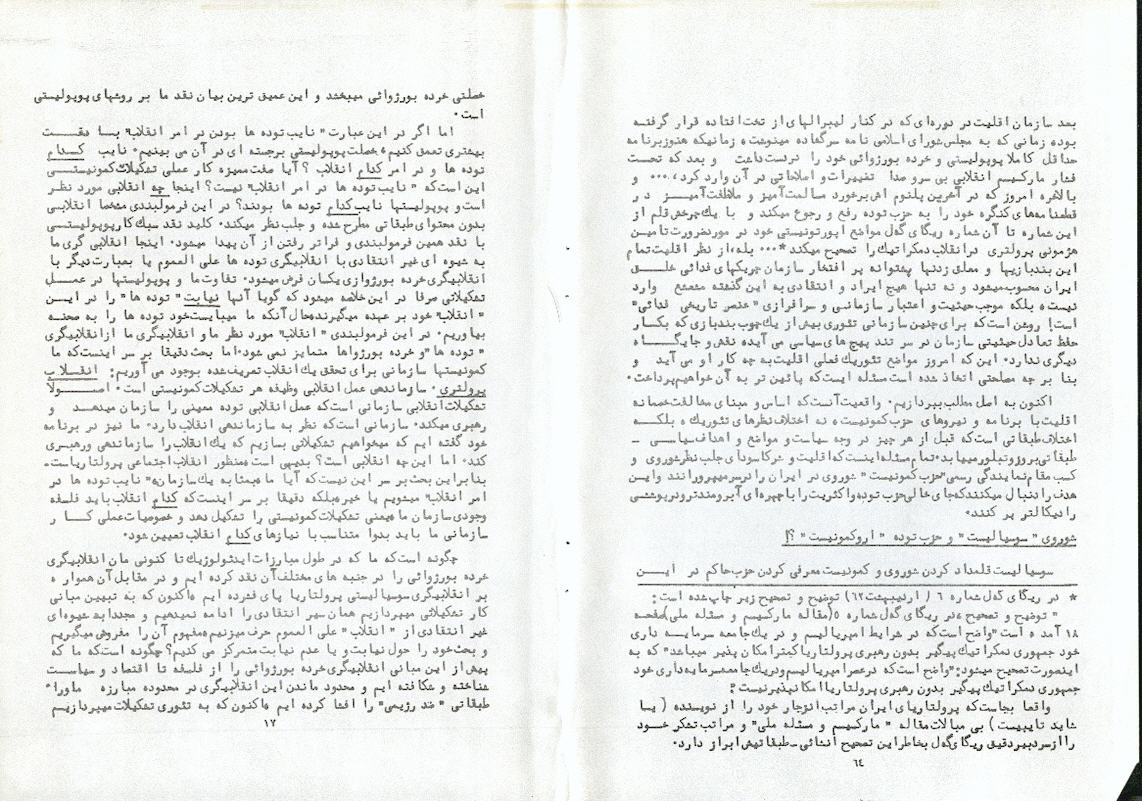 بعد سازمان اقلیت در دوره‌ای که در کنار لیبرالهای از تخت افتاده قرار گرفته
بوده زمانی که به مجلس شورای اسلامی نامه سرگشاده مینوشت و زمانیکه هنوز برنامه
حداقل کاملا پوپولیستی و خرده بورژوائی خود را درست داشت و بعد که تحت
فشار مارکسیسم انقلابی بی سر و صدا تغییرات و اصلاحاتی در آن وارد کرد،... و
بالاخره امروز که در آخرین پلنوم اش برخورد مسالمت آمیز و ملاطفت آمیز در
قطعنامه‌های کنگره خود را به حزب توده رفع و رجوع میکند و با یک چرخش قلم از
این شماره تا آن شماره ریگای گه‌ل مواضع اپورتونیستی خود در مورد ضرورت تامین
هژمونی پرولتری در انقلاب دمکراتیک را تصحیح میکند*... بله، از نظر اقلیت تمام
این بندبازیها و معلق زدنها پشتوانه پر افتخار سازمان چریکهای فدائی خلق
ایران محسوب میشود و نه تنها هیچ ایراد و انتقادی به این گذشته مشعشع وارد
نیست، بلکه موجب حیثیت و اعتبار سازمانی و سرافرازی "عنصر تاریخی فدائی"
است! روشن است که برای چنین سازمانی تئوری بیش از یک چوب بندبازی که بکار
حفظ تعادل حیثیتی سازمان در سر تند پیچ های سیاسی می آید، نقش و جایگاه
دیگری ندارد. این که امروز مواضع تئوریک فعلی اقلیت به چه کار او می آید و
بنا بر چه مصلحتی اتخاذ شده است مسئله ایست که پائین تر به آن خواهیم پرداخت.
اکنون به اصل مطلب بپردازیم. واقعیت آنست که اساس و مبنای مخالفت خصمانه
اقلیت با برنامه و نیروهای حزب کمونیست، نه اختلاف نظرهای تئوریک، بلکه
اختلاف طبقاتی است که قبل از هر چیز در وجه سیاست و مواضع و اهداف سیاسی -
طبقاتی بروز و تبلور مییابد. تمام مسئله اینست که اقلیت و شرکا سودای جلب نظر شوروی و
کسب مقام نمایندگی رسمی "حزب کمونیست" شوروی در ایران را در سر میپرورانند و این
هدف را دنبال میکنند که جای خالی حزب توده و اکثریت را با چهره‌ای آبرومندتر و در پوششی
رادیکالتر پر کنند.
شوروی "سوسیالیست" و حزب توده "اروکمونیست"؟!
سوسیالیست قلمداد کردن شوروی و کمونیست معرفی کردن حزب حاکم در این
* در ریگای گه‌ل شماره ۶ (اردیبهشت ۶۲) توضیح و تصحیح زیر چاپ شده است:
"توضیح و تصحیح، در ریگای گه‌ل شماره ۵ (مقاله مارکسیسم و مسئله ملی) صفحه
۱۸ آمده است "واضح است که در شرایط امپریالیسم و در یک جامعه سرمایه داری
خود جمهوری دمکراتیک پیگیر بدون رهبری پرولتاریا کمتر امکان پذیر میباشد" که به
اینصورت تصحیح میشود: "واضح است که در عصر امپریالیسم و در یک جامعه سرمایه‌داری خود
جمهوری دمکراتیک پیگیر بدون رهبری پرولتاریا امکانپذیر نیست"!
واقعا بجاست که پرولتاریای ایران مراتب انزجار خود را از نویسنده (یا
شاید تایپیست) بی مبالات مقاله "مارکسیسم و مسئله ملی" و مراتب تشکر خود
را از سردبیر دقیق ریگای گه‌ل بخاطر این تصحیح انشائی - طبقاتیش ابراز دارد.
٦٤
خصلتی خرده بورژوائی میبخشد و این عمیق ترین بیان نقد ما بر روشهای پوپولیستی
است.
اما اگر در این عبارت "نایب توده ها بودن در امر انقلاب" با دقت
بیشتری تعمق کنیم، خصلت پوپولیستی برجسته ای در آن می بینیم. نایب کدام
توده ها و در امر کدام انقلاب؟ آیا صفت ممیزه کار عملی تشکیلات کمونیستی
این است که "نایب توده ها در امر انقلاب" نیست؟ اینجا چه انقلابی مورد نظر
است و پوپولیستها نایب کدام توده ها بودند؟ در این فرمولبندی مشخصا انقلابی
بدون محتوای طبقاتی مطرح شده و جلب نظر میکند. کلید نقد سبک کار پوپولیستی
با نقد همین فرمولبندی و فراتر رفتن از آن پیدا میشود. اینجا انقلابی گری ما
به شیوه ای غیر انتقادی با انقلابیگری توده ها علی العموم یا بعبارت دیگر با
انقلابیگری خرده بورژوازی یکسان فرض میشود. تفاوت ما و پوپولیستها در عمل
تشکیلاتی صرفا در این خلاصه میشود که گویا آنها نیابت "توده ها" را در این
"انقلاب" خود بر عهده میگیرند، حال آنکه ما میبایست خود توده ها را به صحنه
بیاوریم. در این فرمولبندی "انقلاب" مورد نظر ما و انقلابیگری ما از انقلابیگری
"توده ها" و خرده بورژواها متمایز نمی شود. اما بحث دقیقا بر سر اینست که ما
کمونیستها سازمانی برای تحقق یک انقلاب تعریف شده بوجود می آوریم: انقلاب
پرولتری. سازماندهی عمل انقلابی وظیفه هر تشکیلات کمونیستی است. اصولا
تشکیلات انقلابی سازمانی است که عمل انقلابی توده معینی را سازمان میدهد و
رهبری میکند. سازمانی است که نظر به سازماندهی انقلاب دارد. ما نیز در برنامه
خود گفته ایم که میخواهیم تشکیلاتی بسازیم که یک انقلاب را سازماندهی و رهبری
کند. اما این چه انقلابی است؟ بدیهی است، منظور انقلاب اجتماعی پرولتاریاست.
بنابراین بحث بر سر این نیست که آیا ما بمثابه یک سازمان، "نایب توده ها در
امر انقلاب" میشویم یا خیر، بلکه دقیقا بر سر اینست که کدام انقلاب باید فلسفه
وجودی سازمان ما، یعنی تشکیلات کمونیستی را تشکیل دهد و خصوصیات عملی کار
سازمانی ما باید بدوا متناسب با نیازهای کدام انقلاب تعیین شود.
چگونه است که ما که در طول مبارزات ایدئولوژیک تا کنونی مان انقلابیگری
خرده بورژوائی را در جنبه های مختلف آن نقد کرده ایم و در مقابل آن همواره
بر انقلابیگری سوسیالیستی پرولتاریا پای فشرده ایم، اکنون که به تبیین مبانی
کار تشکیلاتی میپردازیم همان سیر انتقادی را ادامه نمیدهیم و مجددا به شیوه‌ای
غیر انتقادی از "انقلاب" علی العموم حرف میزنیم، مفهوم آن را مفروض میگیریم
و بحث خود را حول نیابت و یا عدم نیابت متمرکز می کنیم؟ چگونه است که ما که
پیش از این مبانی انقلابیگری خرده بورژوائی را از فلسفه تا اقتصاد و سیاست
شناخته و شکافته ایم و محدود ماندن این انقلابیگری در محدوده مبارزه ماوراء
طبقاتی "ضد رژیمی" را افشا کرده ایم، اکنون که به تئوری تشکیلات میپردازیم
۱۷